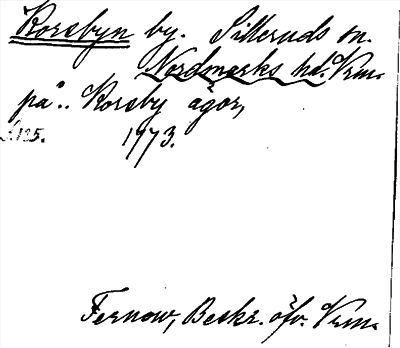 Korsbyn by. Silleruds sn.
Nordmarks hd. Vrm.
på.. Korsby ägor,
s. 125. 1773.
Fernow, Beskr. öfv. Vrm.